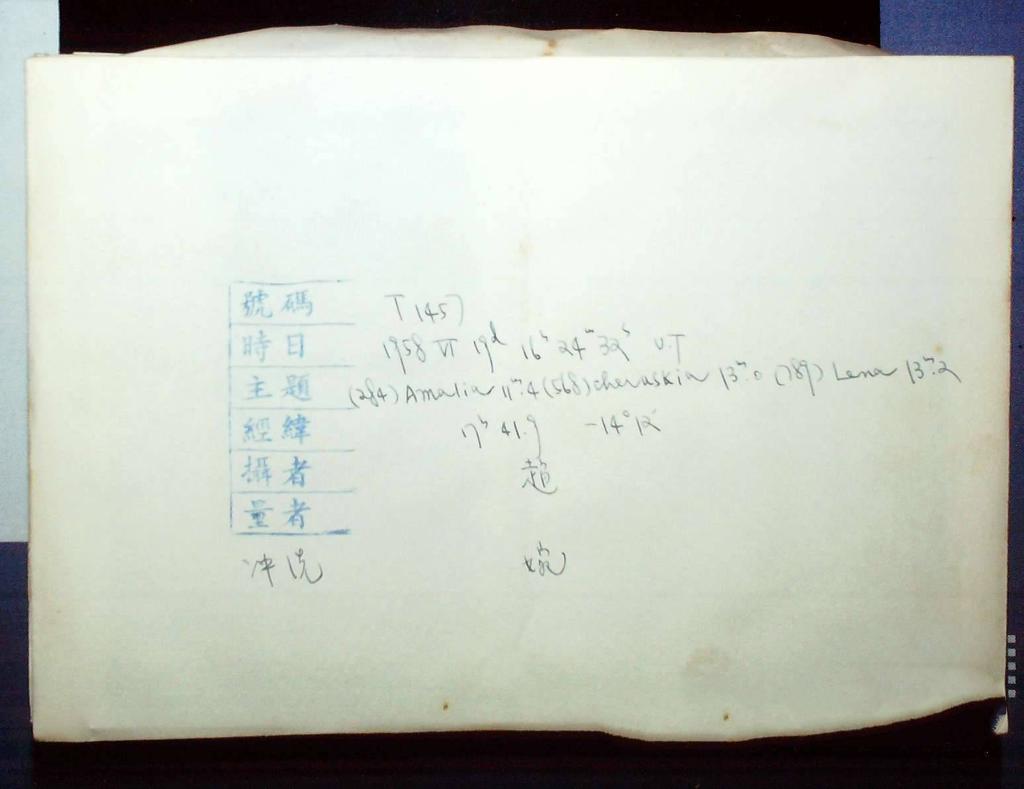 號碼 T 1457
時日 1958 VI 19ᵈ 16ʰ 24ᵐ 32ˢ U.T
主題 (284) Amalia 11ᵐ.4 (568) cheruskia 13ᵐ.0 (789) Lena 13ᵐ.2
經緯 17ʰ 41.9 -14°12'
攝者 趙
量者
冲洗 婉